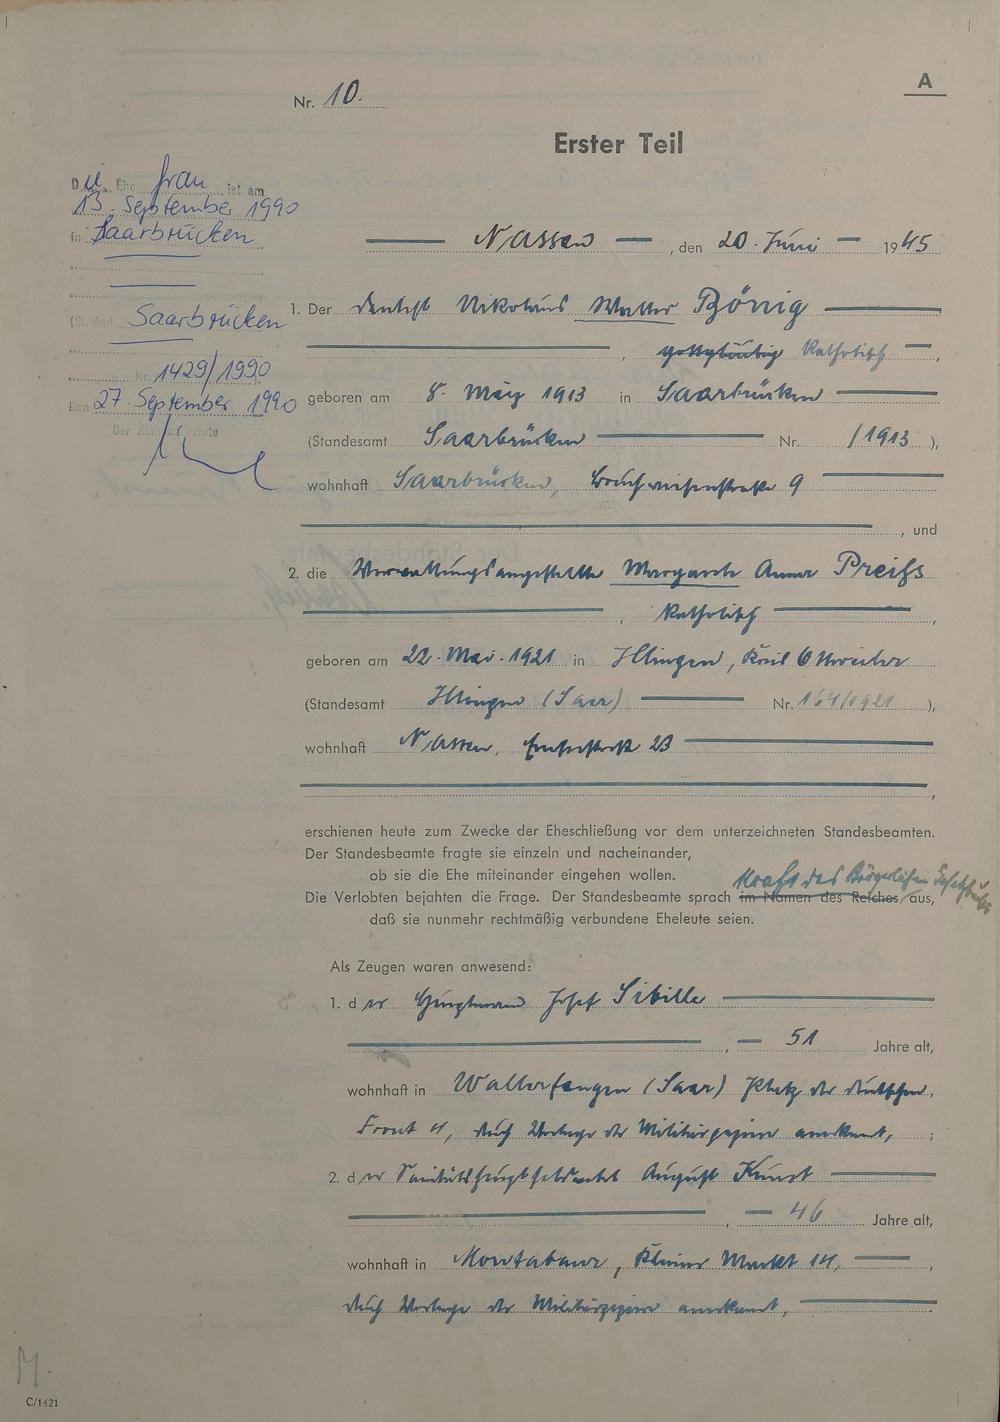 A
Nr. 10.
Erster Teil
Die Ehe frau ist am
13. September 1990
in Saarbrücken
Saarbrücken
Nr. 1429/1990
Den 27 September 1990
Der Standesbeamte
Nassau, den 20. Juni 1945
1. Der Nikolaus Walter Bönig
, gottgläubig katholisch,
geboren am 8. März 1913 in Saarbrücken
(Standesamt Saarbrücken Nr. /1913),
wohnhaft Saarbrücken, Bruchwiesenstraße 9
, und
2. die Verwaltungsangestellte Margarete Anna Preiß
, katholisch,
geboren am 22. Mai 1921 in Illingen, Kreis Ottweiler
(Standesamt Illingen (Saar) Nr. 164/1921),
wohnhaft Nassau, Emserstraße 23
,
erschienen heute zum Zwecke der Eheschließung vor dem unterzeichneten Standesbeamten.
Der Standesbeamte fragte sie einzeln und nacheinander,
ob sie die Ehe miteinander eingehen wollen.
kraft des Bürgerlichen Gesetzbuchs
Die Verlobten bejahten die Frage. Der Standesbeamte sprach im Namen des Reiches aus,
daß sie nunmehr rechtmäßig verbundene Eheleute seien.
Als Zeugen waren anwesend:
1. der Hauptmann Josef Sibille
, 51 Jahre alt,
wohnhaft in Wallerfangen (Saar) Platz der deutschen
Front 11, durch Vorlage der Militärpapiere anerkannt, ;
2. der Sanitätshauptfeldwebel August Kunst
, 46 Jahre alt,
wohnhaft in Montabaur, Kleiner Markt 14,,
durch Vorlage der Militärpapiere anerkannt,
M.
C/1421